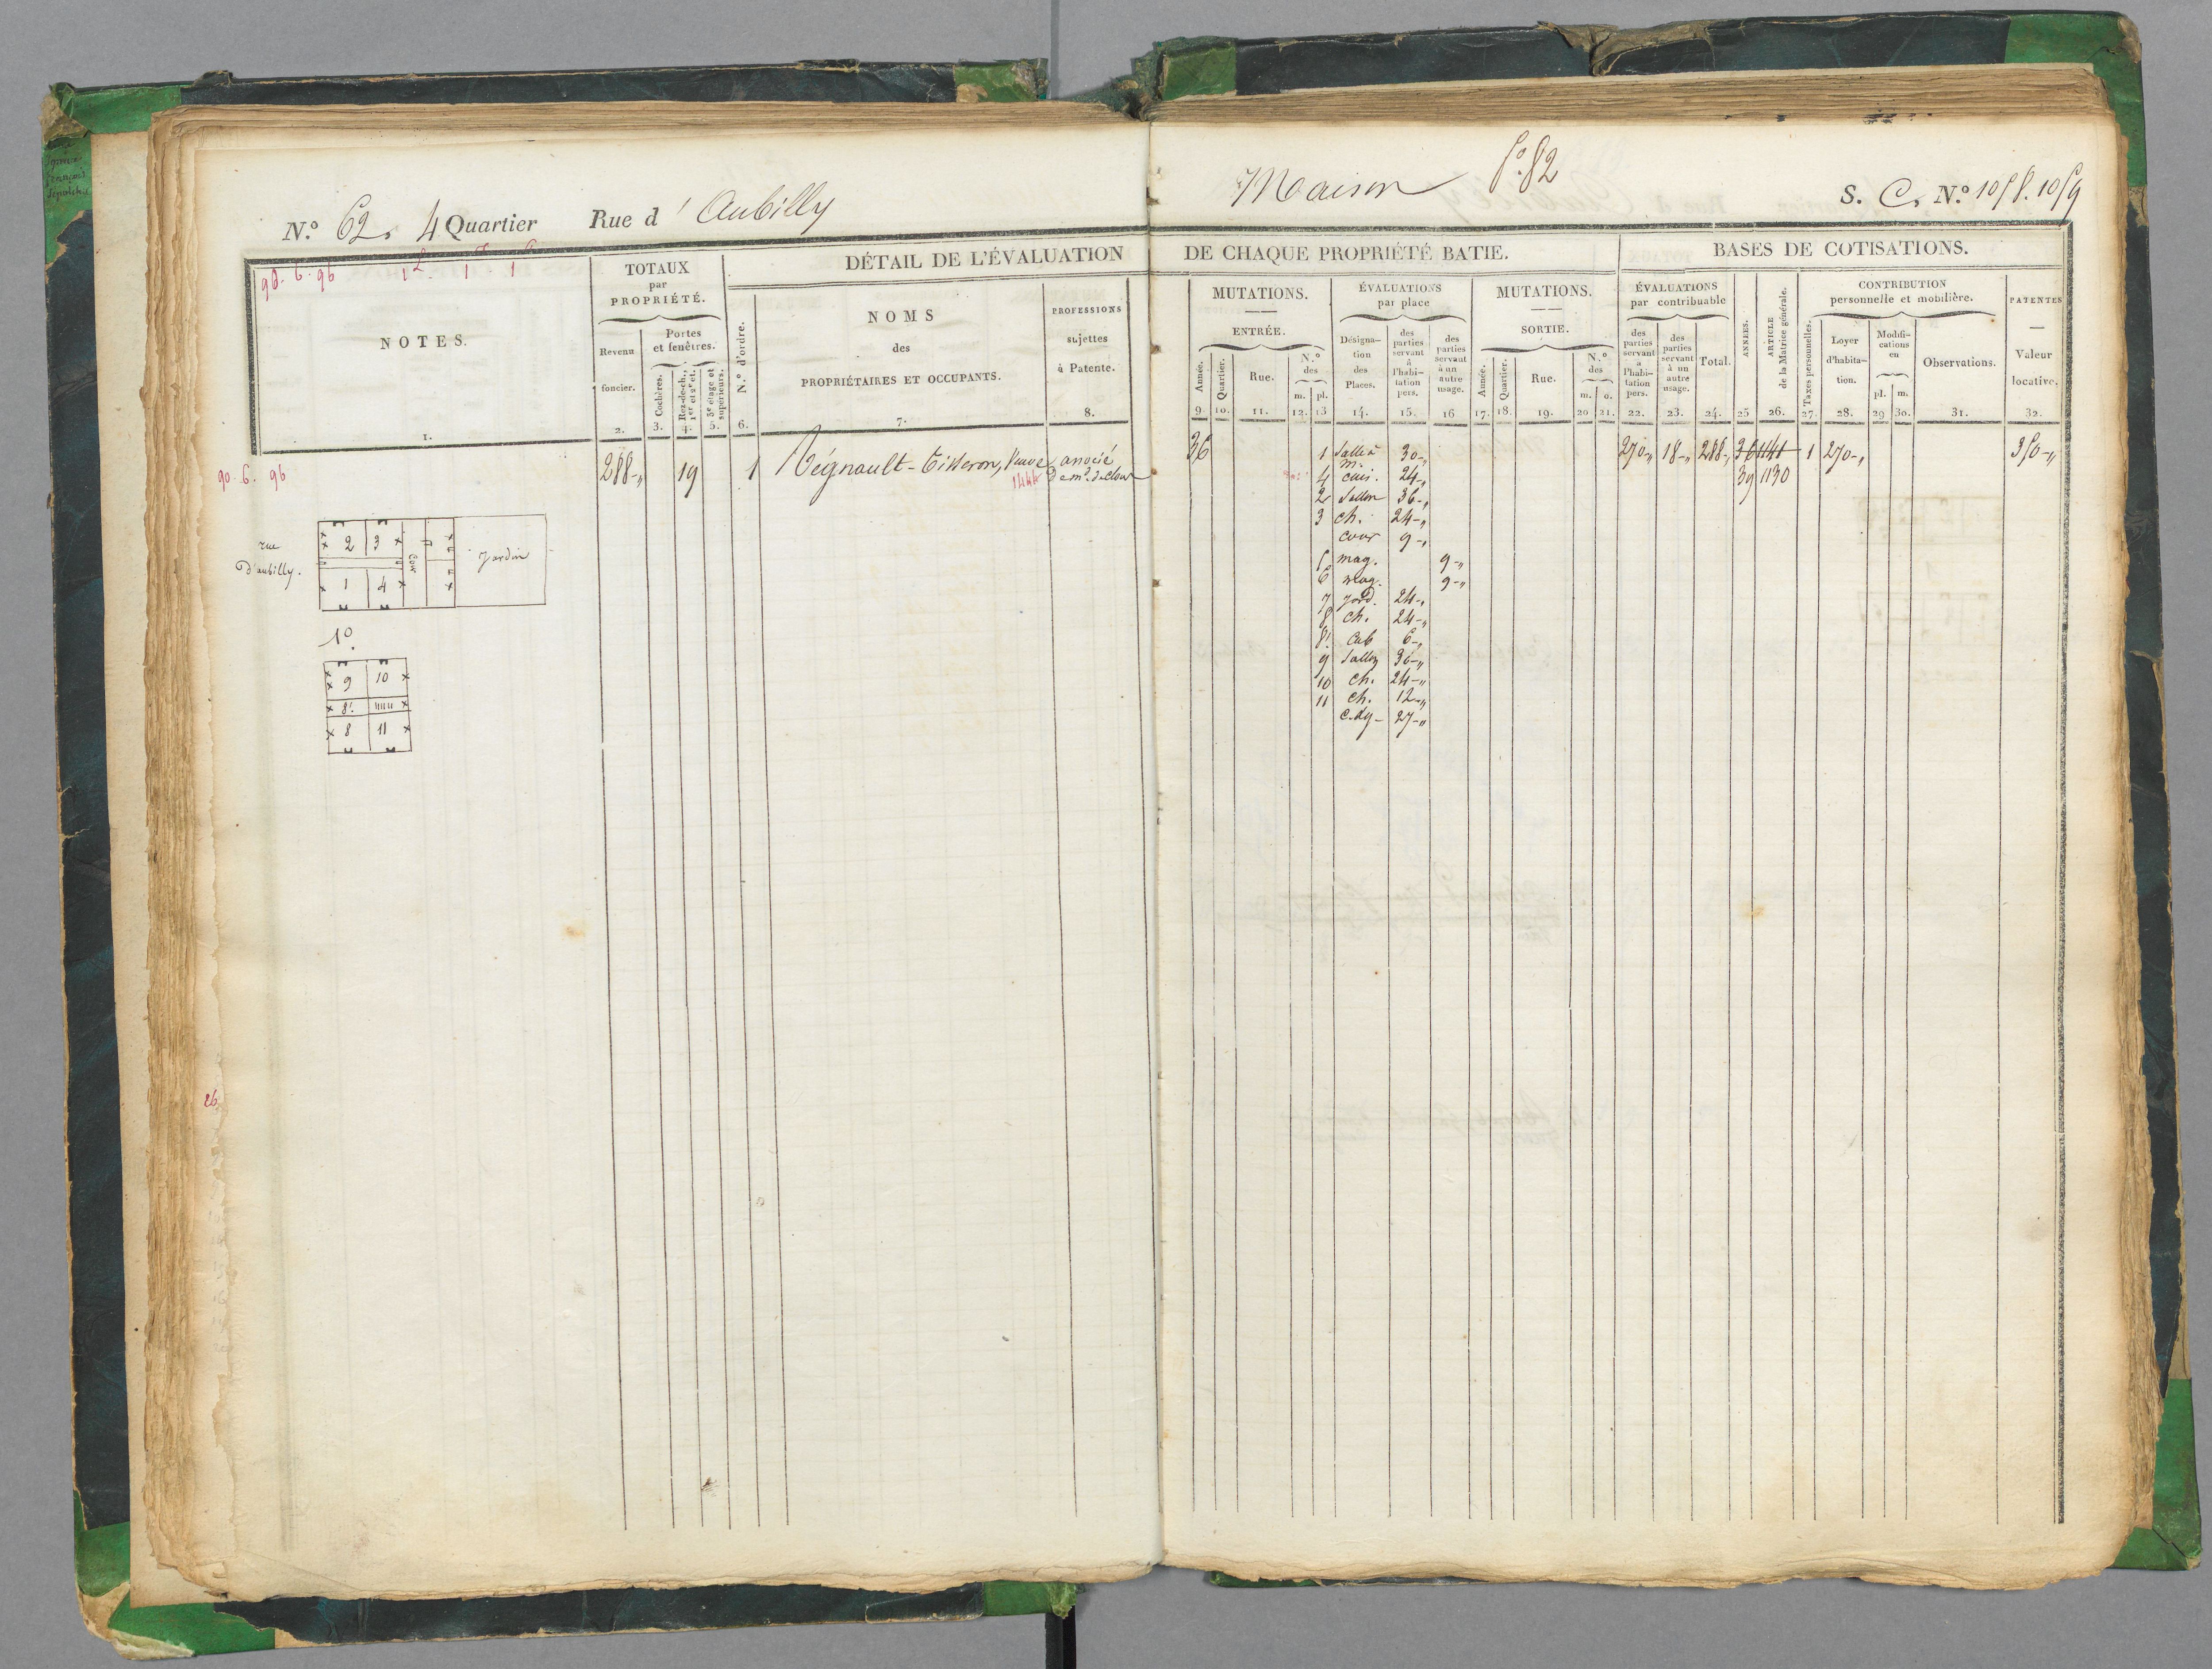 N.º 62. 4 Quartier Rue d' Aubilly
Maison fº 82
S. C. N.º 1058. 1059
DÉTAIL DE L'ÉVALUATION DE CHAQUE PROPRIÉTÉ BATIE.
BASES DE COTISATIONS.
90. 6. 96
NOTES.
1.
TOTAUX
par
PROPRIÉTÉ.
Revenu
foncier.
2.
Portes
et fenêtres.
Cochères.
3.
Rez-de-ch.,
1er et 2e et.
4.
3e étage et
supérieurs.
5.
N.º d'ordre.
6.
NOMS
des
PROPRIÉTAIRES ET OCCUPANTS.
7.
PROFESSIONS
sujettes
à Patente.
8.
MUTATIONS.
ENTRÉE.
Année.
9.
Quartier.
10.
Rue.
11.
N.º
des
m. pl.
12. 13
ÉVALUATIONS
par place
Désigna-
tion
des
Places.
14.
des
parties
servant
à
l'habi-
tation
pers.
15.
des
parties
servant
à un
autre
usage.
16
MUTATIONS.
SORTIE.
Année.
17.
Quartier.
18.
Rue.
19.
N.º
des
m. o.
20 21.
ÉVALUATIONS
par contribuable
des
parties
servant
à
l'habi-
tation
pers.
22.
des
parties
servant
à un
autre
usage.
23.
Total.
24.
ANNÉES.
25
ARTICLE
de la Matrice générale.
26.
CONTRIBUTION
personnelle et mobilière.
Taxes personnelles.
27.
Loyer
d'habita-
tion.
28.
Modifi-
cations
en
pl. m.
29 30.
Observations.
31.
PATENTES
Valeur
locative.
32.
90. 6. 96
288-" 19 1 Régnault-Tisseron, Veuve associé
1444 de md. de clous
36 1 Salle à 30-" 270-" 18-" 288-" 36 1141 1 270-" 350-"
m.
4 cuis. 24-" 39 1130
2 Sallon 36-"
3 ch. 24-"
cour 9-"
5 mag. 9-"
6 mag. 9-"
7 jard. 24-"
8 ch. 24-"
8! cab 6-"
9 Sallon 30-"
10 ch. 24-"
11 ch. 12-"
27-"
rue
D'aubilly.
2 3
cour
Jardin
1 4
1º.
9 10
8!
8 11
26